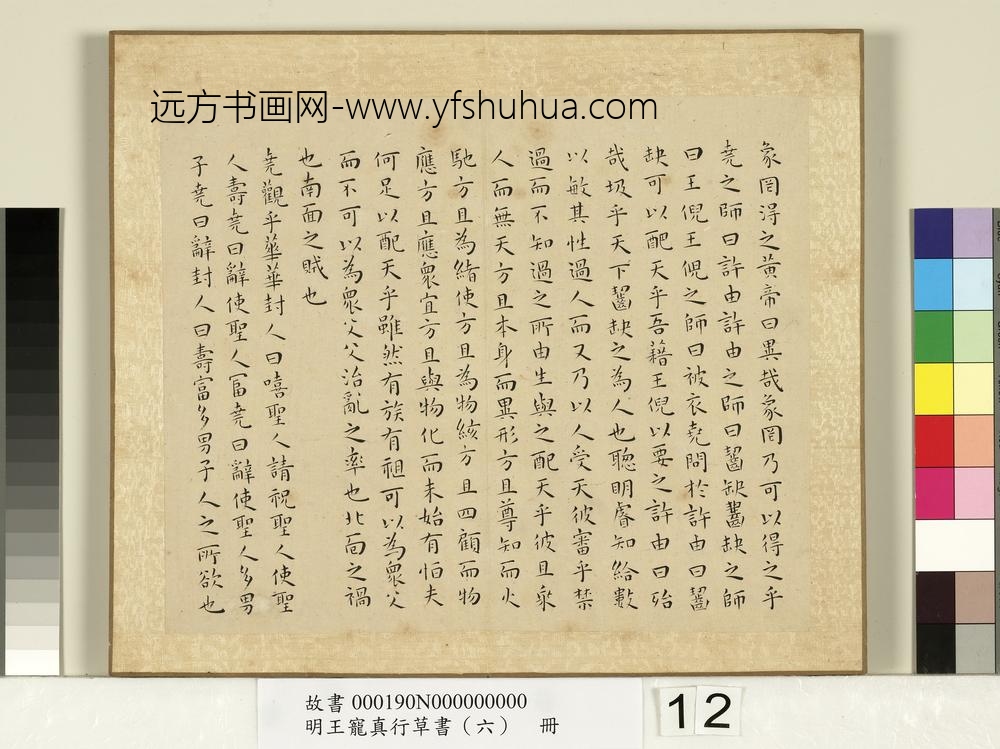 远方书画网-www.yfshuhua.com
象罔得之黃帝曰異哉象罔乃可以得之乎
堯之師曰許由許由之師曰齧缺齧缺之師
曰王倪王倪之師曰被衣堯問於許由曰齧
缺可以配天乎吾藉王倪以要之許由曰殆
哉圾乎天下齧缺之為人也聰明睿知給數
以敏其性過人而又乃以人受天彼審乎禁
過而不知過之所由生與之配天乎彼且乘
人而無天方且本身而異形方且尊知而火
馳方且為緒使方且為物絯方且四顧而物
應方且應衆宜方且與物化而未始有恒夫
何足以配天乎雖然有族有祖可以為衆父
而不可以為衆父父治亂之率也北面之禍
也南面之賊也
堯觀乎華華封人曰嘻聖人請祝聖人使聖
人壽堯曰辭使聖人富堯曰辭使聖人多男
子堯曰辭封人曰壽富多男子人之所欲也
故書 000190N000000000
明王寵真行草書（六） 冊
12